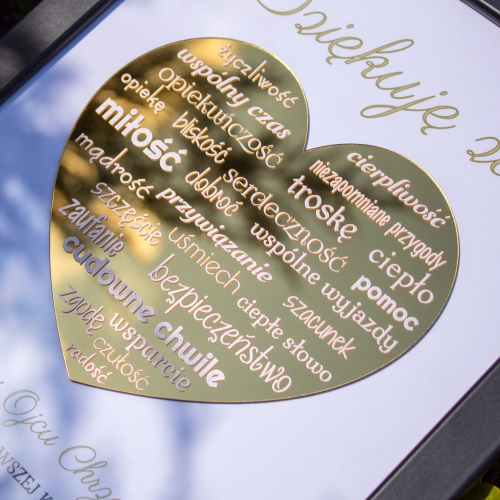 Dziękuję
życzliwość
wspólny czas
opiekuńczość
opiekę
bliskość
cierpliwość
miłość
serdeczność
niezapomniane przygody
dobroć
troskę
mądrość
przywiązanie
ciepło
szczęście
uśmiech
wspólne wyjazdy
pomoc
zaufanie
bezpieczeństwo
szacunek
cudowne chwile
ciepłe słowo
zgodę
wsparcie
czułość
radość
Ojcu